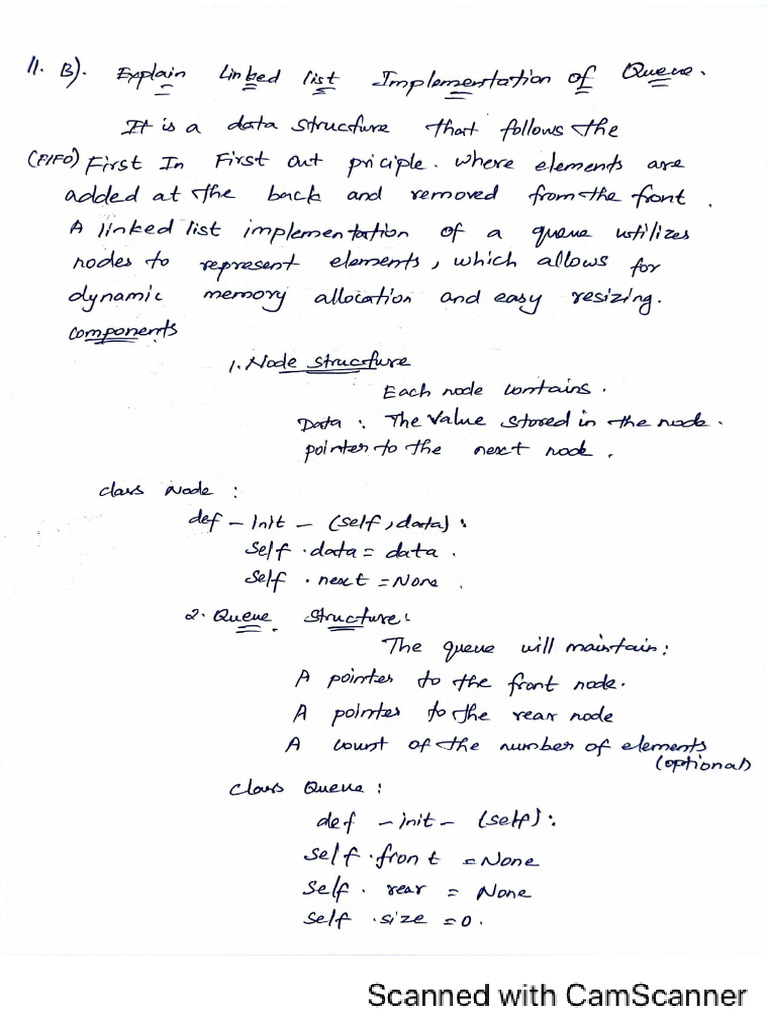 11. B). Explain Linked list Implementation of Queue.
It is a data structure that follows the
(FIFO) First In First out priciple. where elements are
added at the back and removed from the front.
A linked list implementation of a queue ustilizes
nodes to represent elements, which allows for
dynamic memory allocation and easy resizing.
components
1. Node structure
Each node contains.
Data : The value stored in the node.
pointer to the next node.
class Node :
def - init - (self, data) :
self . data = data .
self . next = None .
2. Queue Structure :
The queue will maintain :
A pointer to the front node.
A pointer to the rear node
A count of the number of elements
(optional)
class Queue :
def - init - (self) :
self . front = None
self . rear = None
self . size = 0 .
Scanned with CamScanner